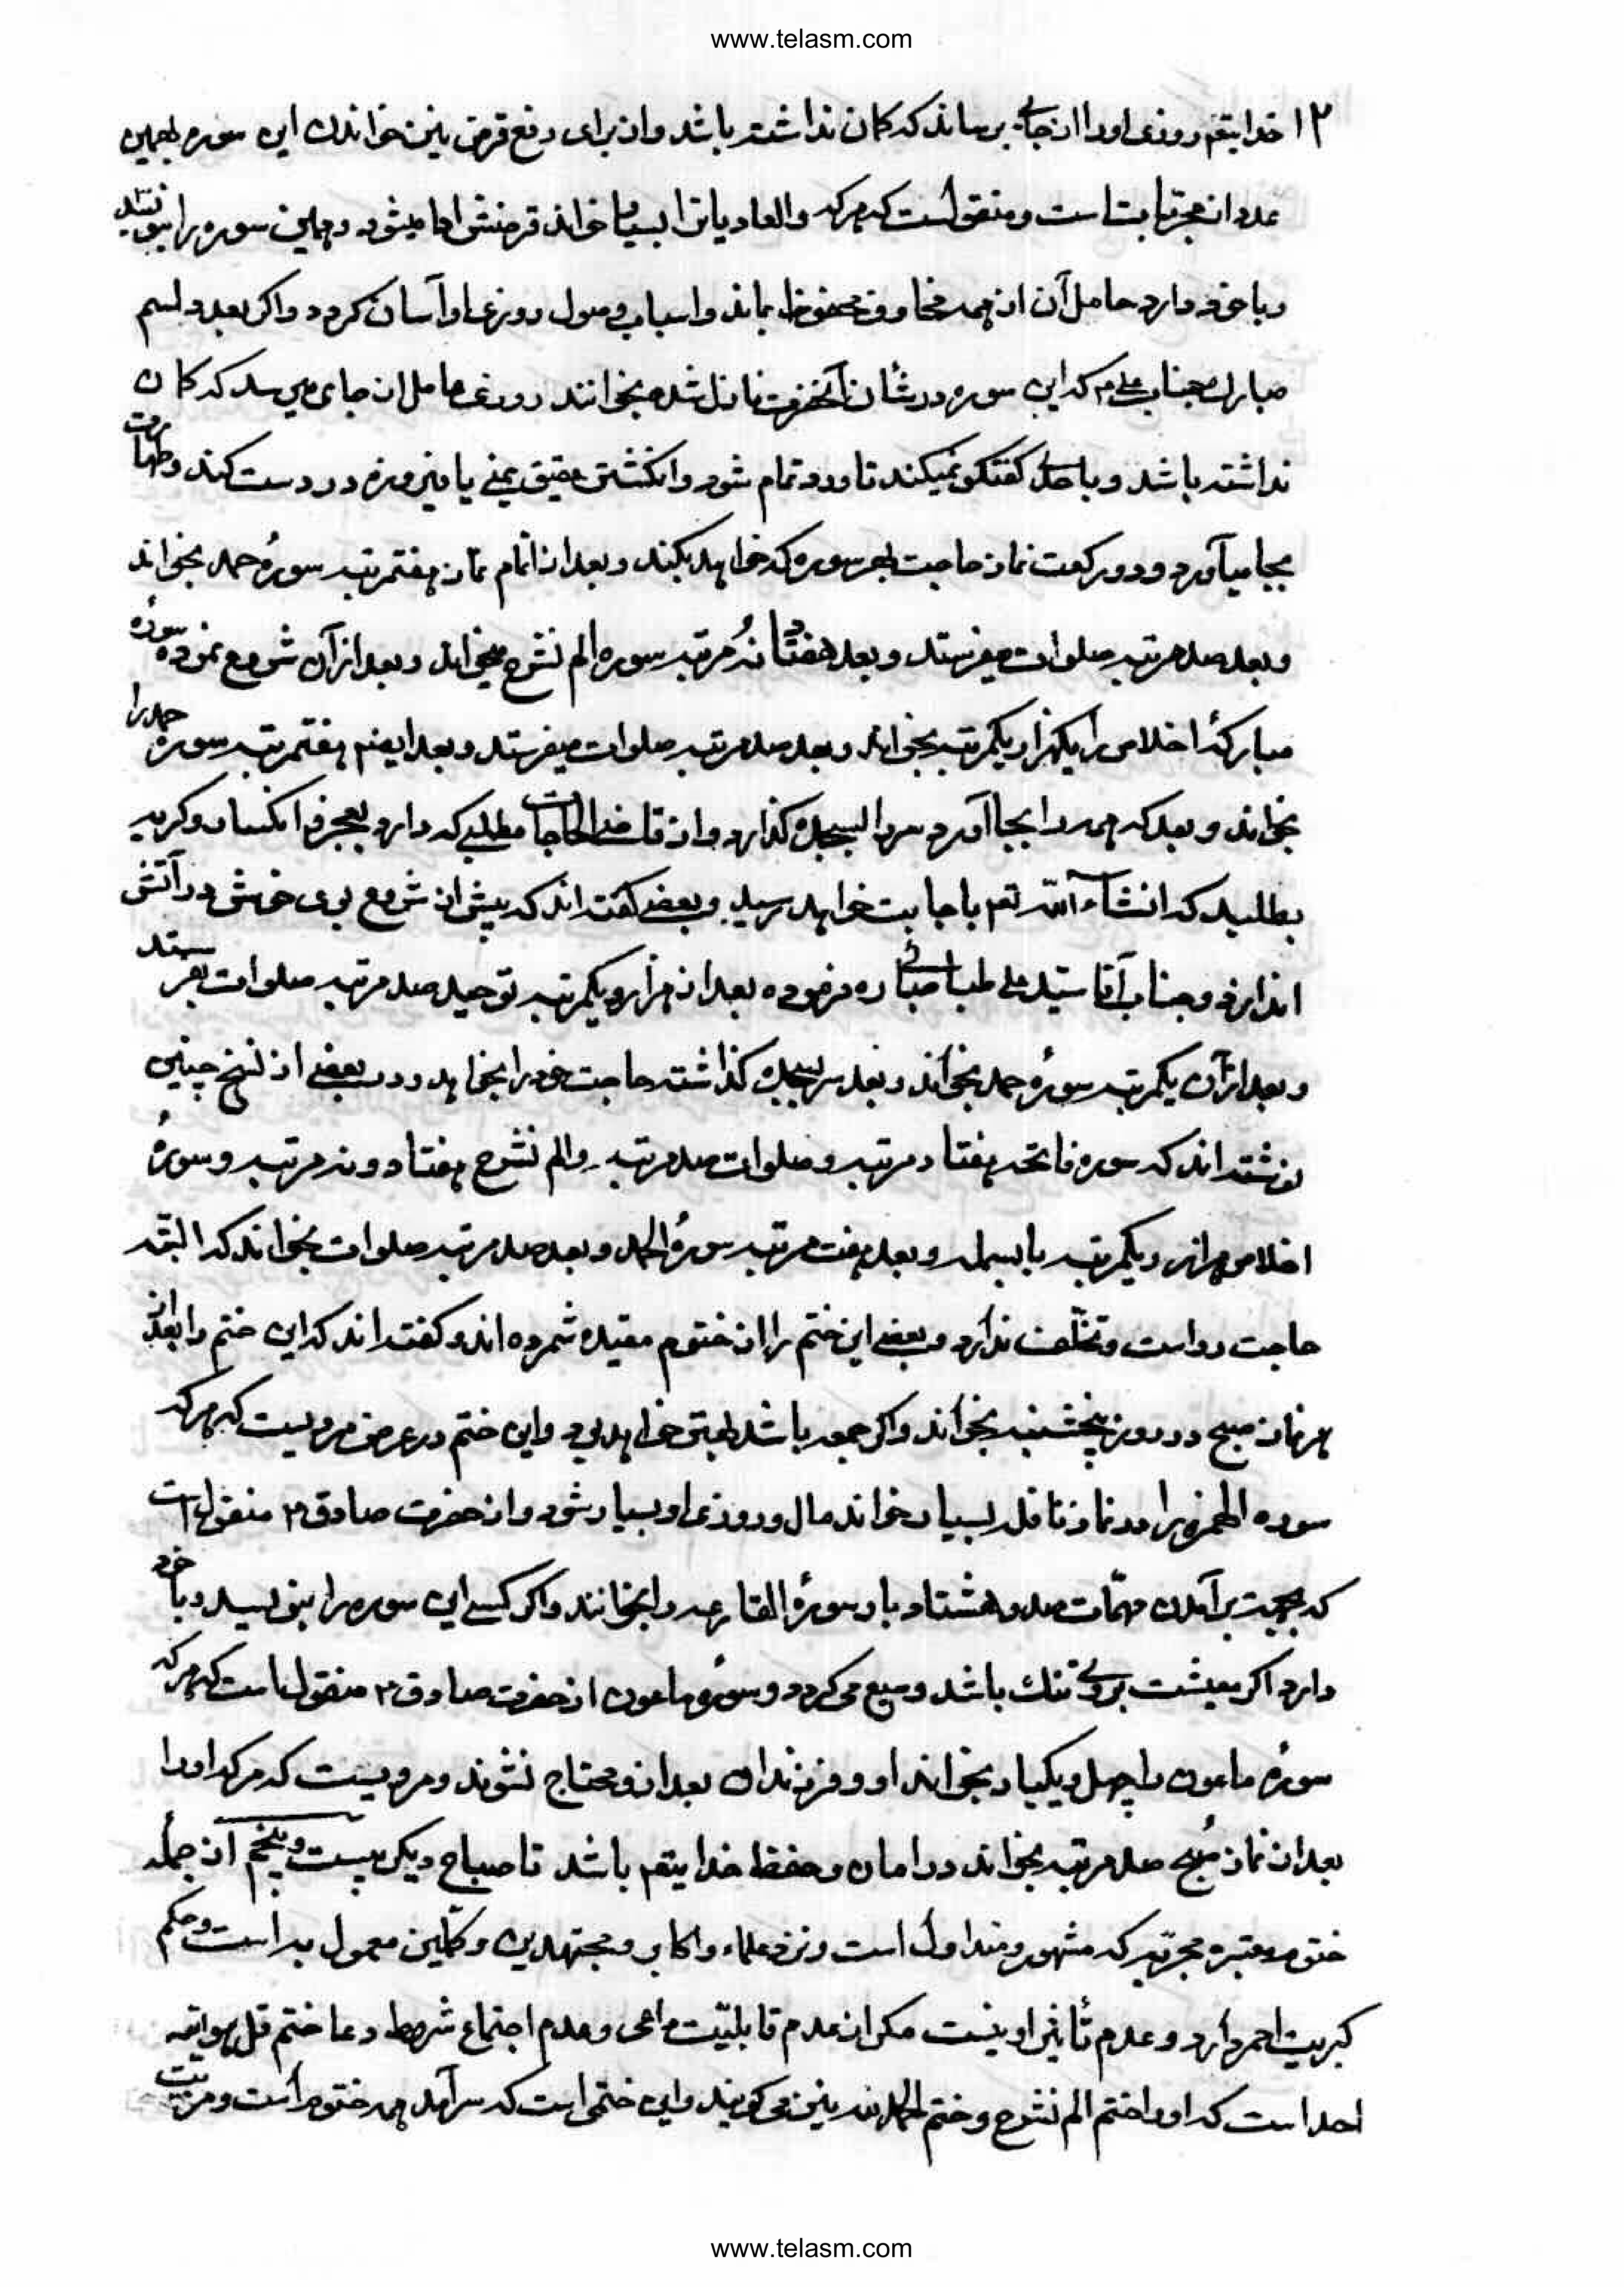 www.telasm.com
۱۲ خدایتعم روزی اورا از جائی برساند که کمان نداشته باشد و از برای رفع قرض نیز خواندن این سوره بهمین
عدد از مجربات است و منقول است که هرکه والعادیات را بسیار خواند قرضش ادا میشود و همین سوره را بنویسند
و با خود دارد حامل آن از همه مخاوف محفوظ بماند و اسباب وصول روزی او آسان کردد و اکر بعدد اسم
مبارک جناب علی م که این سوره در شأن آنحضرت نازل شده بخوانند روزی عامل از جای میرسد که کمان
نداشته باشد و با احدی کفتکو نمیکند تا ورد تمام شود و انکشتر عقیق یمنی یا فیروزه در دست کند و طهارت
بجا میآورد و دو رکعت نماز حاجت بهر سوره که خواهد بکند و بعد از اتمام نماز هفتمرتبه سورهٔ حمد بخواند
و بعد صد مرتبه صلوات میفرستد و بعد هفتاد نُه مرتبه سوره الم نشرح میخواند و بعد از آن شروع نموده سورهٔ
مبارکهٔ اخلاص را یکهزار و یکمرتبه بخواند و بعد صد مرتبه صلوات میفرستد و بعد ایضم هفتمرتبه سورهٔ حمد را
بخواند و بعد که همه را بجا آورد سر را بسجده کذارد و از قاضی الحاجات مطلبی که دارد بعجز و انکسار و کریه
بطلبد که انشاء الله تعم باجابت خواهد رسید و بعضی کفته اند که پیش از شروع بوی خوش در آتش
اندازد و جناب آقا سید علی طباطبائی ره فرموده بعد از هزار و یکمرتبه توحید صد مرتبه صلوات بفرستد
و بعد از آن یکمرتبه سورهٔ حمد بخواند و بعد سر بسجده کذاشته حاجت خود را بخواهد و در بعضی از نسخ چنین
نوشته اند که سوره فاتحه هفتاد مرتبه و صلوات صد مرتبه و الم نشرح هفتاد و نه مرتبه و سورهٔ
اخلاص هزار و یکمرتبه با بسمله و بعد هفت مرتبه سورهٔ الحمد و بعد صد مرتبه صلوات بخواند که البته
حاجت رواست و تخلف ندارد و بعضی این ختم را از ختوم مقیده شمرده اند و کفته اند که این ختم را بعد از
هر نماز صبح در روز پنجشنبه بخواند و اکر جمعه باشد بهتر خواهد بود و این ختم در عرض مرویست که هرکه
سوره الهمزه را در نماز نافله بسیار خواند مال و روزی او بسیار شود و از حضرت صادق ۴ منقول است
که بجهت برآمدن مهمات صد و هشتاد بار سورهٔ القارعه را بخوانند و اکر کسی این سوره را بنویسد و با خود
دارد اکر معیشت بر وی تنک باشد وسیع میکردد و سورهٔ ماعون از حضرت صادق ۴ منقول است که هرکه
سورهٔ ماعون را چهل و یکبار بخواند او و فرزندان بعد از او محتاج نشوند و مرویست که هرکه او را
بعد از نماز صُبح صد مرتبه بخواند در امان و حفظ خدایتعم باشد تا صباح دیکر بیست و پنجم آن جمله
ختوم معتبره مجربه که مشهور و متداول است و نزد علماء و اکابر و مجتهدین و کاملین معمول به است و حکم
کبریت احمر دارد و عدم تأثیر او نیست مکر از عدم قابلیّت داعی و عدم اجتماع شروط دعا ختم قل هو الله
احد است که او را ختم الم نشرح و ختم الحمد لله نیز میکویند و این ختمی است که سرآمد همه ختومات است و مرتبت
www.telasm.com